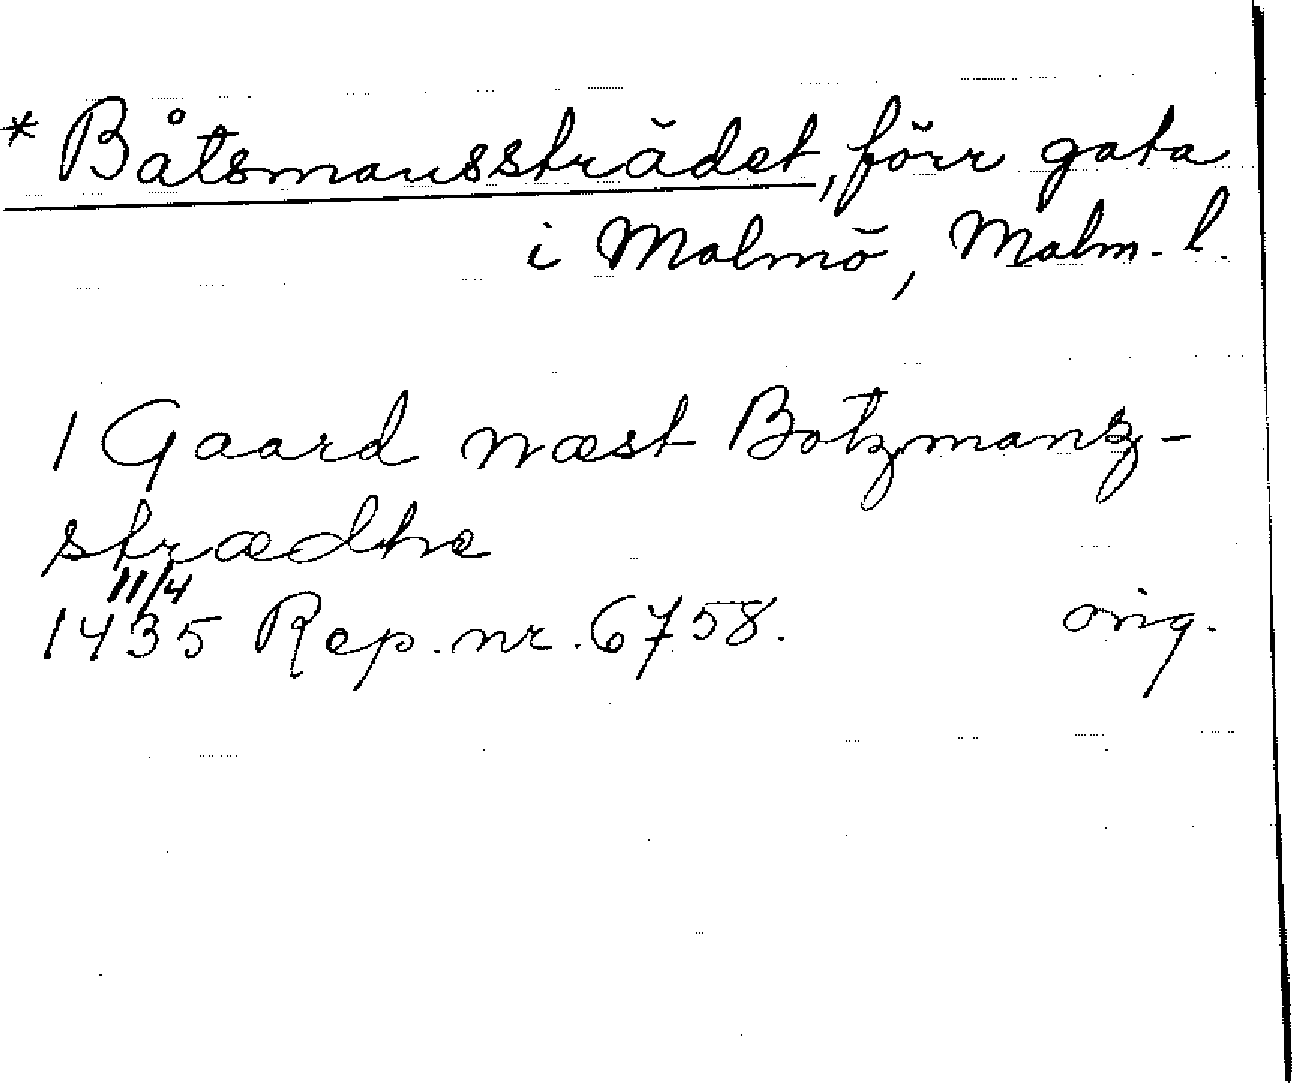 * Båtsmanssträdet, förr gata
i Malmö, Malm. l.
1 Gaard næst Botzmanz-
strædhe
11/4
1435 Rep. nr. 6758. orig.